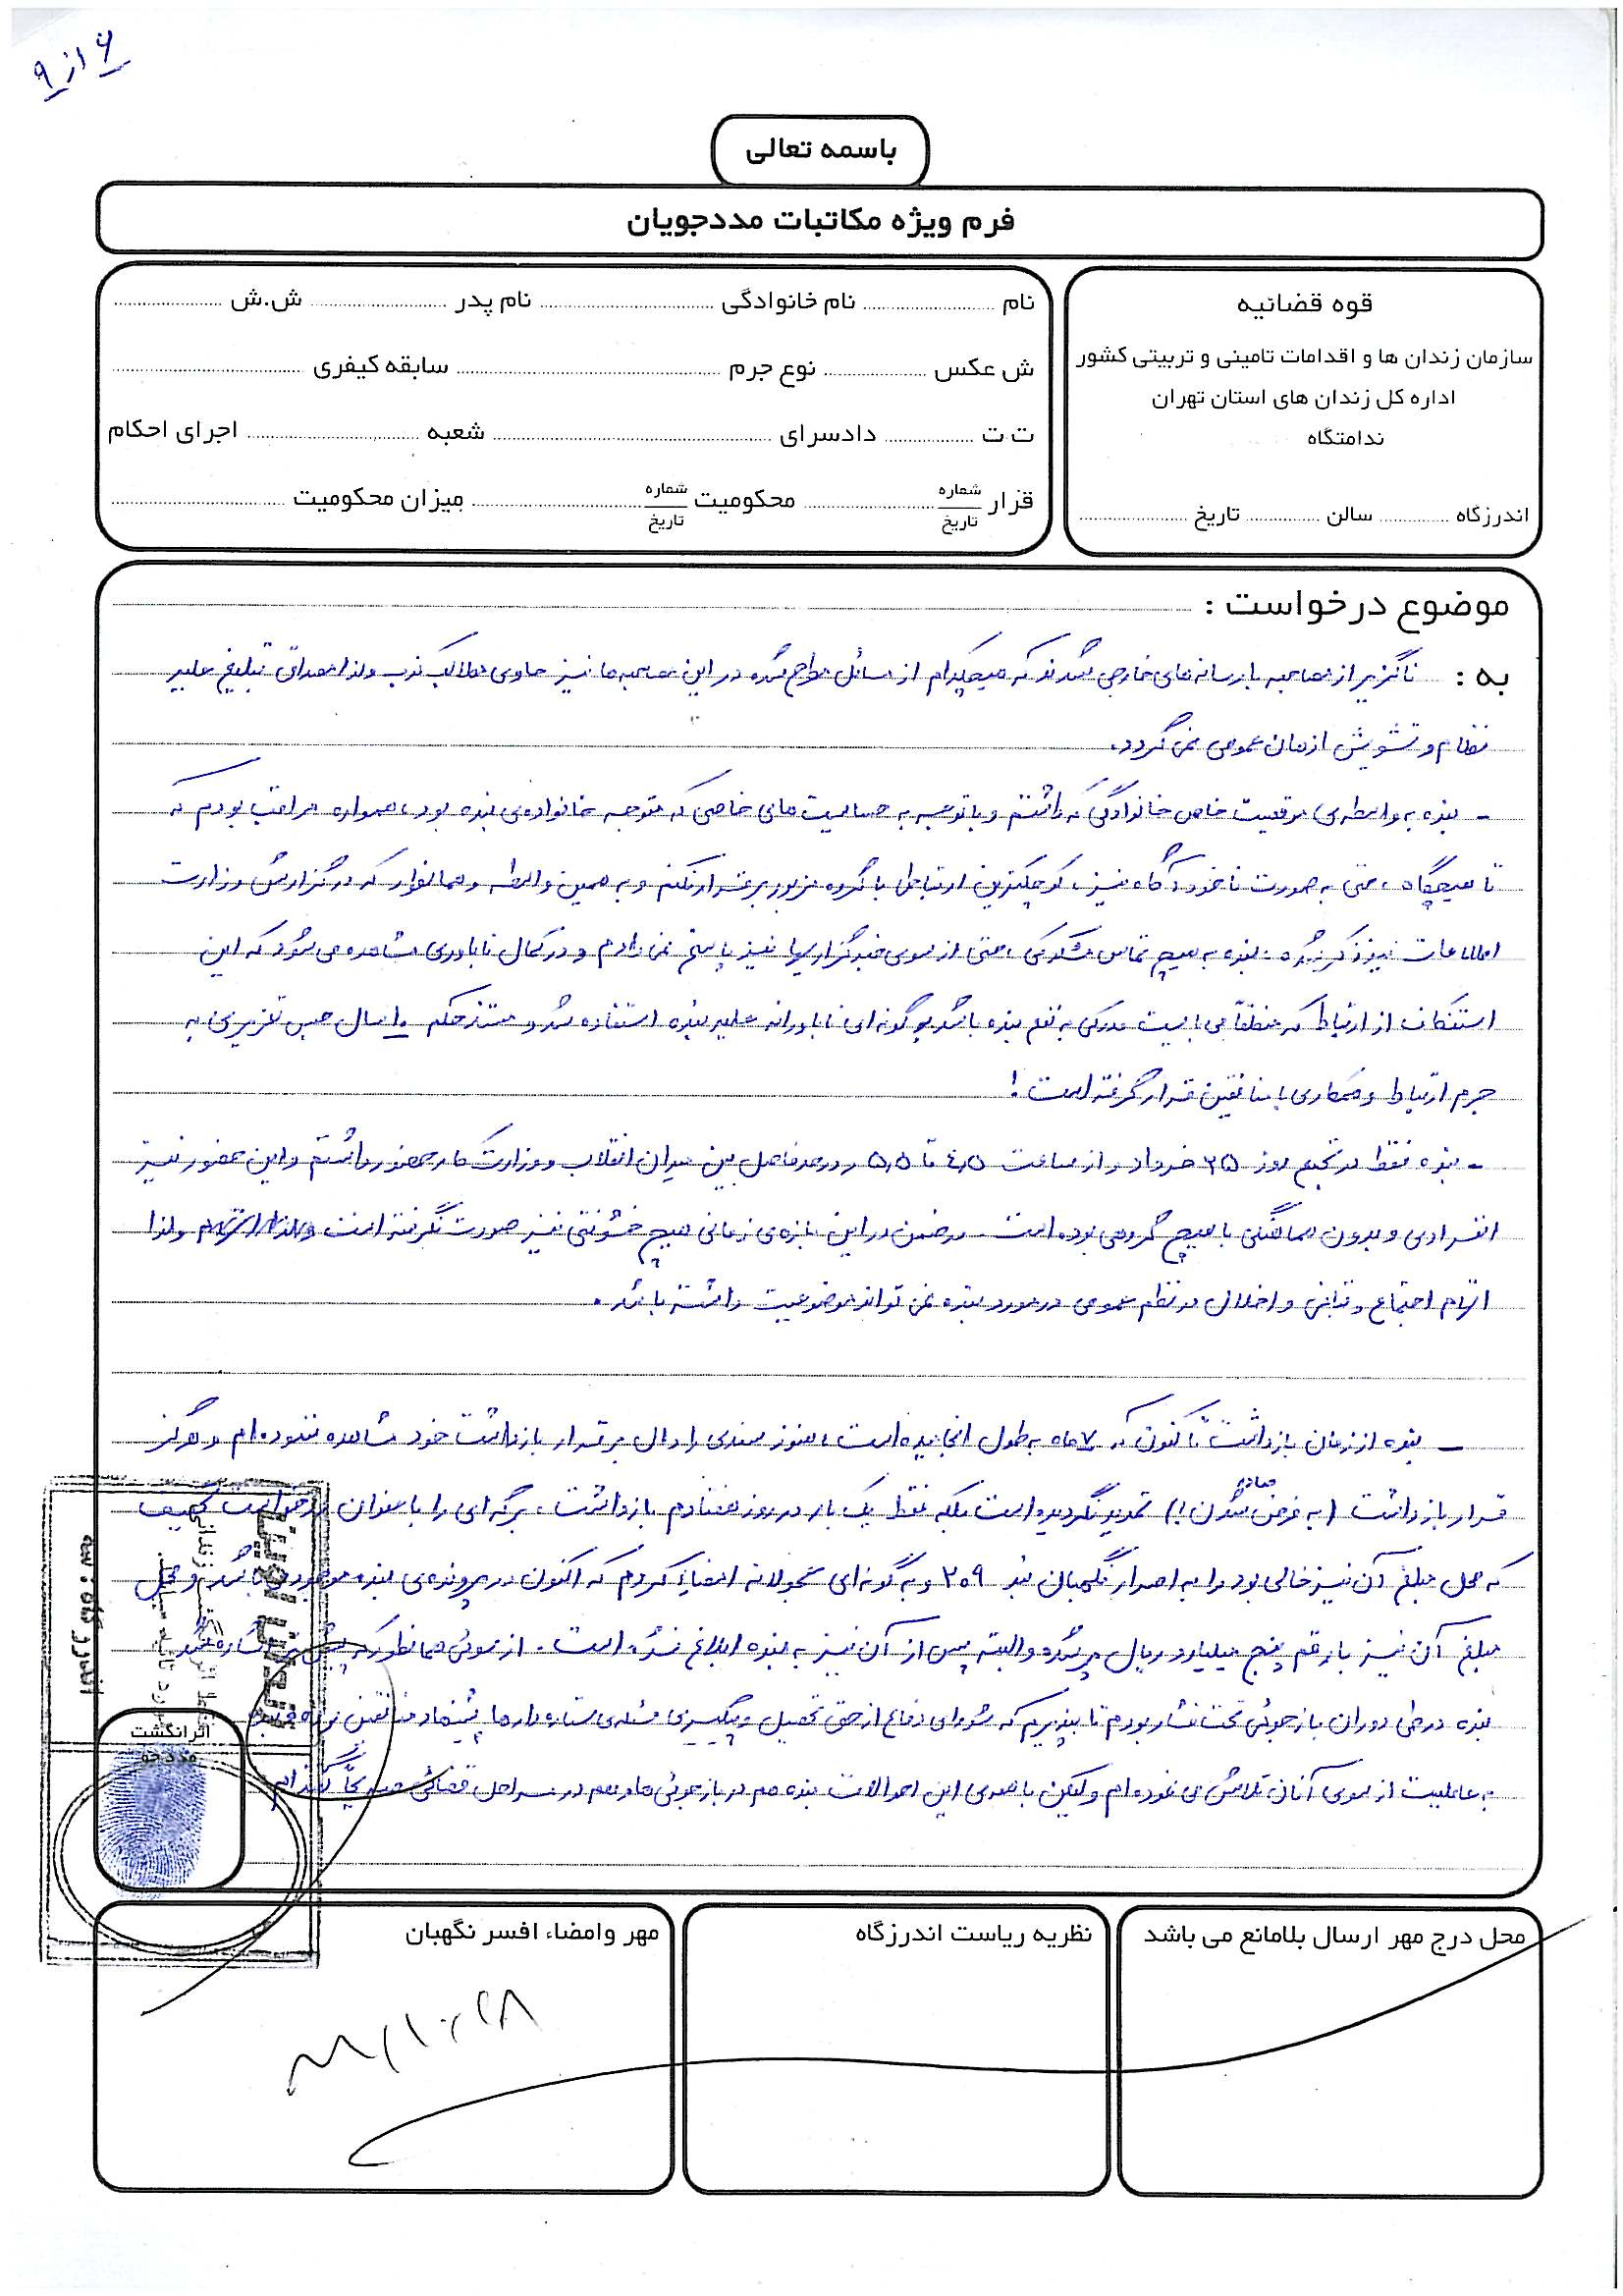 ۶ از ۹
باسمه تعالی
فرم ویژه مکاتبات مددجویان
قوه قضائیه
سازمان زندان ها و اقدامات تامینی و تربیتی کشور
اداره کل زندان های استان تهران
ندامتگاه
اندرزگاه ............ سالن ............ تاریخ ............
نام ............ نام خانوادگی ............ نام پدر ............ ش.ش ............
ش عکس ............ نوع جرم ............ سابقه کیفری ............
ت ت ............ دادسرای ............ شعبه ............ اجرای احکام
قرار شماره تاریخ ............ محکومیت شماره تاریخ ............ میزان محکومیت ............
موضوع درخواست :
به : ناگزیر از مصاحبه با رسانه‌های خارجی شدند که هیچکدام از مسائل مطرح شده در این مصاحبه‌ها نیز حاوی مطالب کذب و لذا مصداق تبلیغ علیه
نظام و تشویش اذهان عمومی نمی گردد.
- بنده به واسطه‌ی موقعیت خاص خانوادگی که داشتم و با توجه به حساسیت های خاصی که متوجه خانواده‌ی بنده بود، همواره مراقب بودم که
تا هیچگاه، حتی به صورت ناخودآگاه نیز، کوچکترین ارتباطی با گروه مزبور برقرار نکنم و به همین واسطه و همانطور که در گزارش وزارت
اطلاعات نیز ذکر شده، بنده به هیچ تماس مشکوکی، حتی از سوی خبرگزاریها نیز پاسخ نمی دادم و در کمال ناباوری مشاهده می شود که این
استنکاف از ارتباط که منطقاً می بایست مدرکی به نفع بنده باشد به گونه‌ای ناباورانه علیه بنده استفاده شد و مستند حکم ۱۰ سال حبس تعزیری به
جرم ارتباط و همکاری با منافقین قرار گرفته است !
- بنده فقط در تجمع روز ۲۵ خرداد و از ساعت ۴٫۵ تا ۵٫۵ و در حد فاصل بین میدان انقلاب و وزارت کار حضور داشتم و این حضور نیز
انفرادی و بدون هماهنگی با هیچ گروهی بوده است. در ضمن در این بازه‌ی زمانی هیچ خشونتی نیز صورت نگرفته است و لذا
اتهام اجتماع و تبانی و اخلال در نظم عمومی در مورد بنده نمی تواند موضوعیت داشته باشد.
- بنده از زمان بازداشت تاکنون که ۷ ماه به طول انجامیده است، هنوز سندی را دال بر قرار بازداشت خود مشاهده ننموده‌ام و هرگز
قرار بازداشت (به فرض صادر شدن!) تمدید نگردیده است بلکه فقط یک بار در روز هفتادم بازداشت، برگه‌ای را با عنوان درخواست تخفیف
که محل مبلغ آن نیز خالی بود را به اصرار نگهبان بند ۲۰۹ و به گونه‌ای عجولانه امضاء کردم که اکنون در پرونده‌ی بنده موجود می باشد و محل
مبلغ آن نیز با رقم پنج میلیارد ریال پر شده و البته پس از آن نیز به بنده ابلاغ نشده است. از سوئی همانطور که پیش اشاره شد
بنده در طی دوران بازجوئی تحت فشار بودم تا بپذیرم که شورای دفاع از حق تحصیل و پیگیری مسئله‌ی ستاره‌دارها پیشنهاد منافقین بوده و بنده
به عاملیت از سوی آنان تلاش می نموده‌ام ولیکن با همه‌ی این احوالات بنده هم در بازجوئی ها و هم در مراحل قضائی صریحاً گفته‌ام
اثر انگشت
مددجو
محل درج مهر ارسال بلامانع می باشد
نظریه ریاست اندرزگاه
مهر وامضاء افسر نگهبان